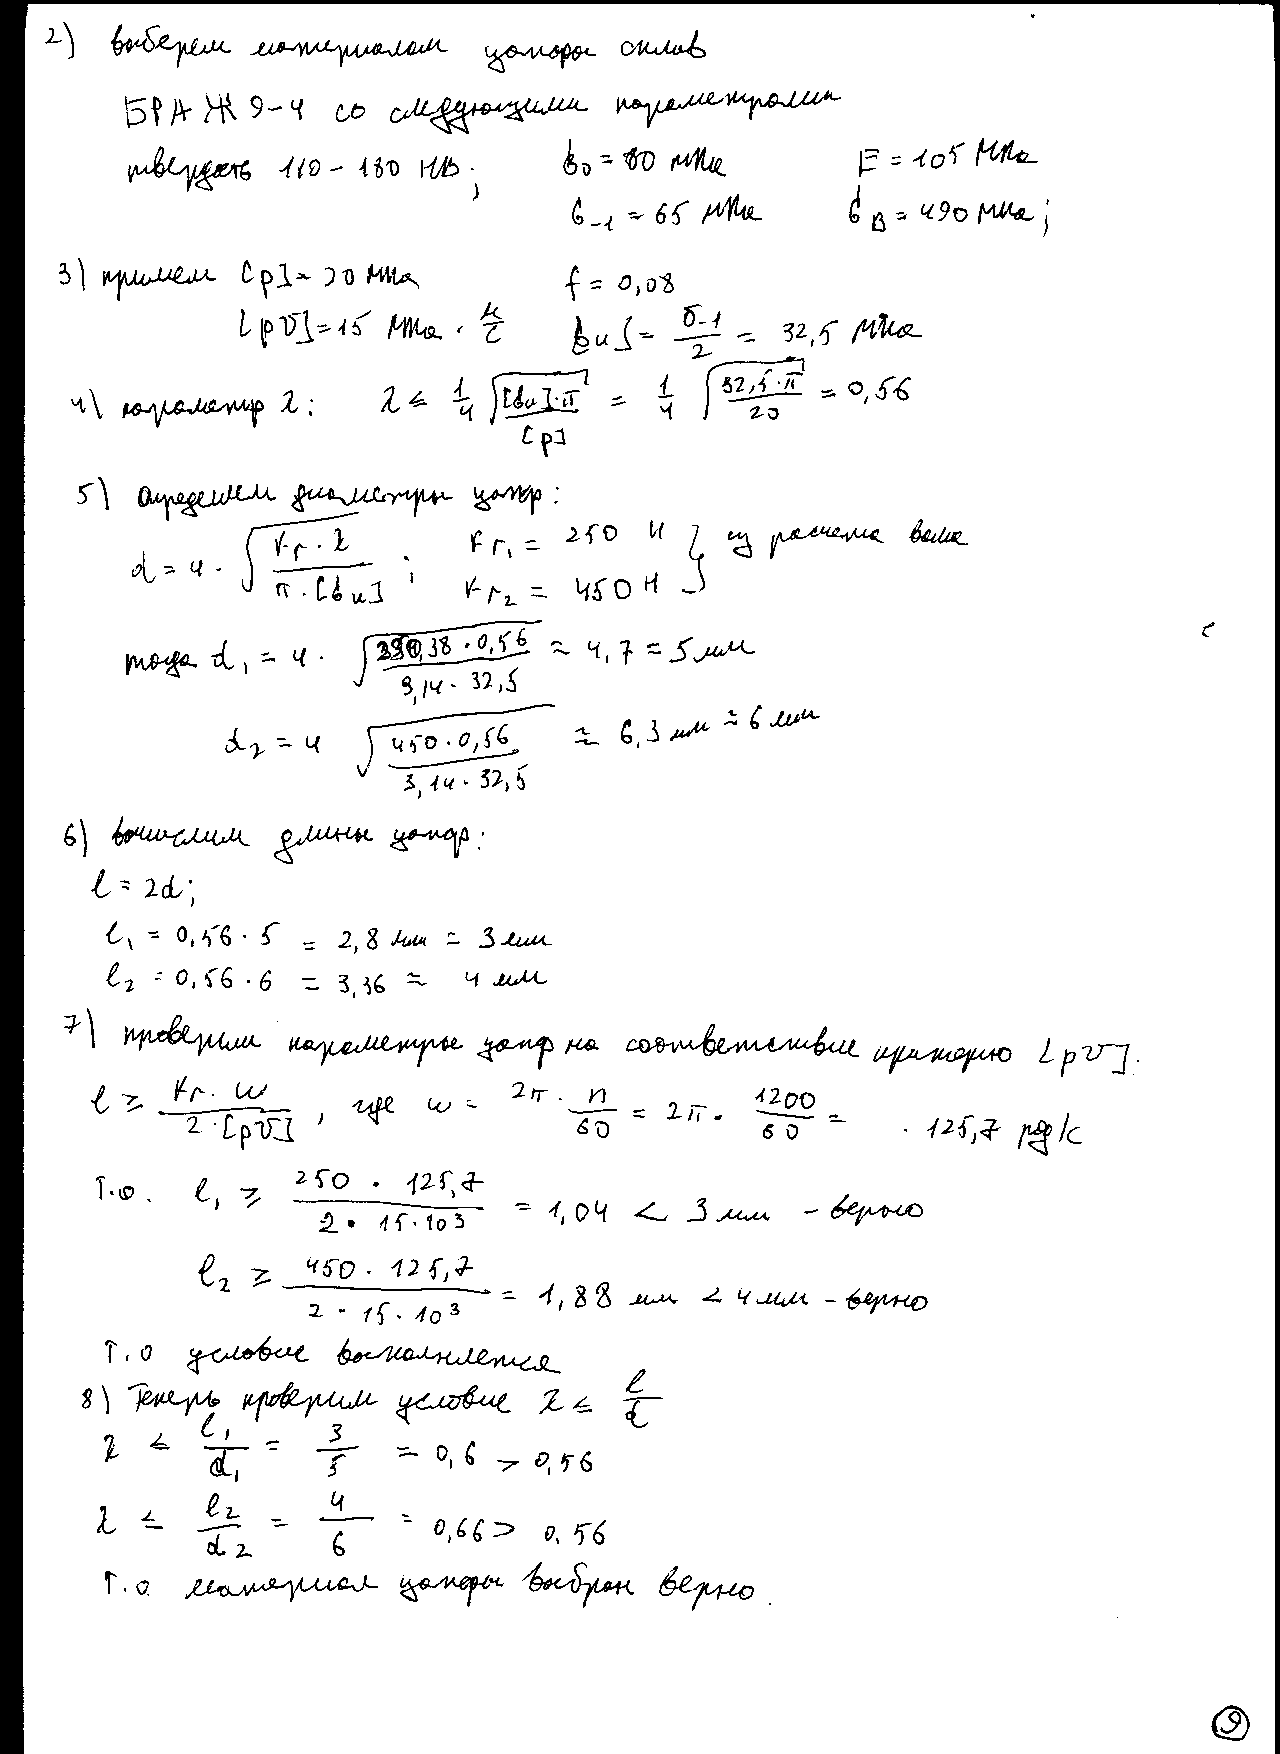 2) выберем материалом цапфы сплав
БРАЖ9-4 со следующими параметрами
твердость 110-180 HB; σ₀ = 80 МПа E = 105 МПа
σ₋₁ = 65 МПа σ_B = 490 МПа;
3) примем [p] = 20 МПа f = 0,08
[pV] = 15 МПа · м/с [σи] = σ₋₁/2 = 32,5 МПа
4) параметр λ: λ ≤ 1/4 √([σи]·π/[p]) = 1/4 √(32,5·π/20) = 0,56
5) Определяем диаметры цапф:
d = 4 · √(Fr·λ/(π·[σи])); Fr₁ = 250 Н } из расчета вала
Fr₂ = 450 Н
тогда d₁ = 4 · √( ,38·0,56/(3,14·32,5)) ≈ 4,7 = 5 мм
d₂ = 4 √(450·0,56/(3,14·32,5)) ≈ 6,3 мм ≈ 6 мм
6) вычислим длины цапф:
l = λd;
l₁ = 0,56·5 = 2,8 мм = 3 мм
l₂ = 0,56·6 = 3,36 ≈ 4 мм
7) проверим параметры цапф на соответствие критерию [pV].
l ≥ Fr·ω/(2·[pV]), где ω = 2π · n/60 = 2π · 1200/60 = 125,7 рад/с
Т.о. l₁ ≥ 250 · 125,7/(2 · 15·10³) = 1,04 < 3 мм - верно
l₂ ≥ 450 · 125,7/(2·15·10³) = 1,88 мм < 4 мм - верно
Т.о условие выполняется
8) Теперь проверим условие λ ≤ l/d
λ ≤ l₁/d₁ = 3/5 = 0,6 > 0,56
λ ≤ l₂/d₂ = 4/6 = 0,66 > 0,56
Т.о материал цапфы выбран верно.
9